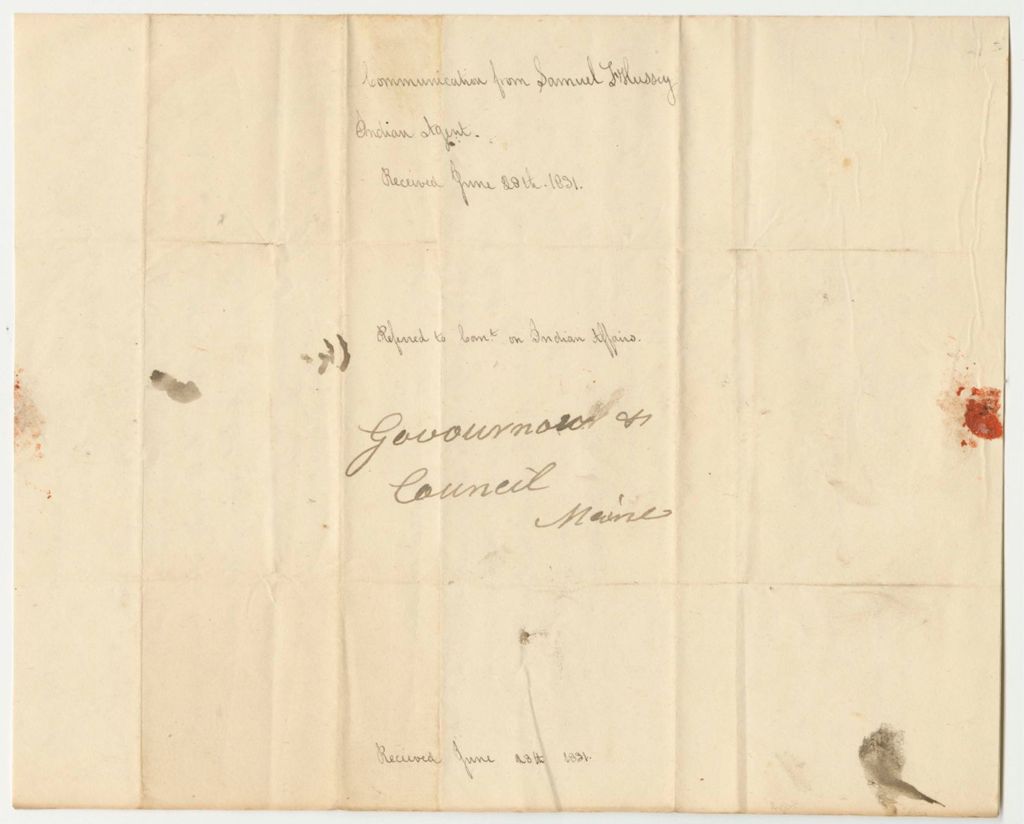 Communication from Samuel F Hussey
Indian Agent.
Received June 28th. 1831.
Referred to Comt. on Indian Affairs.
Govournour &
Council
Maine
Received June 28th 1831.